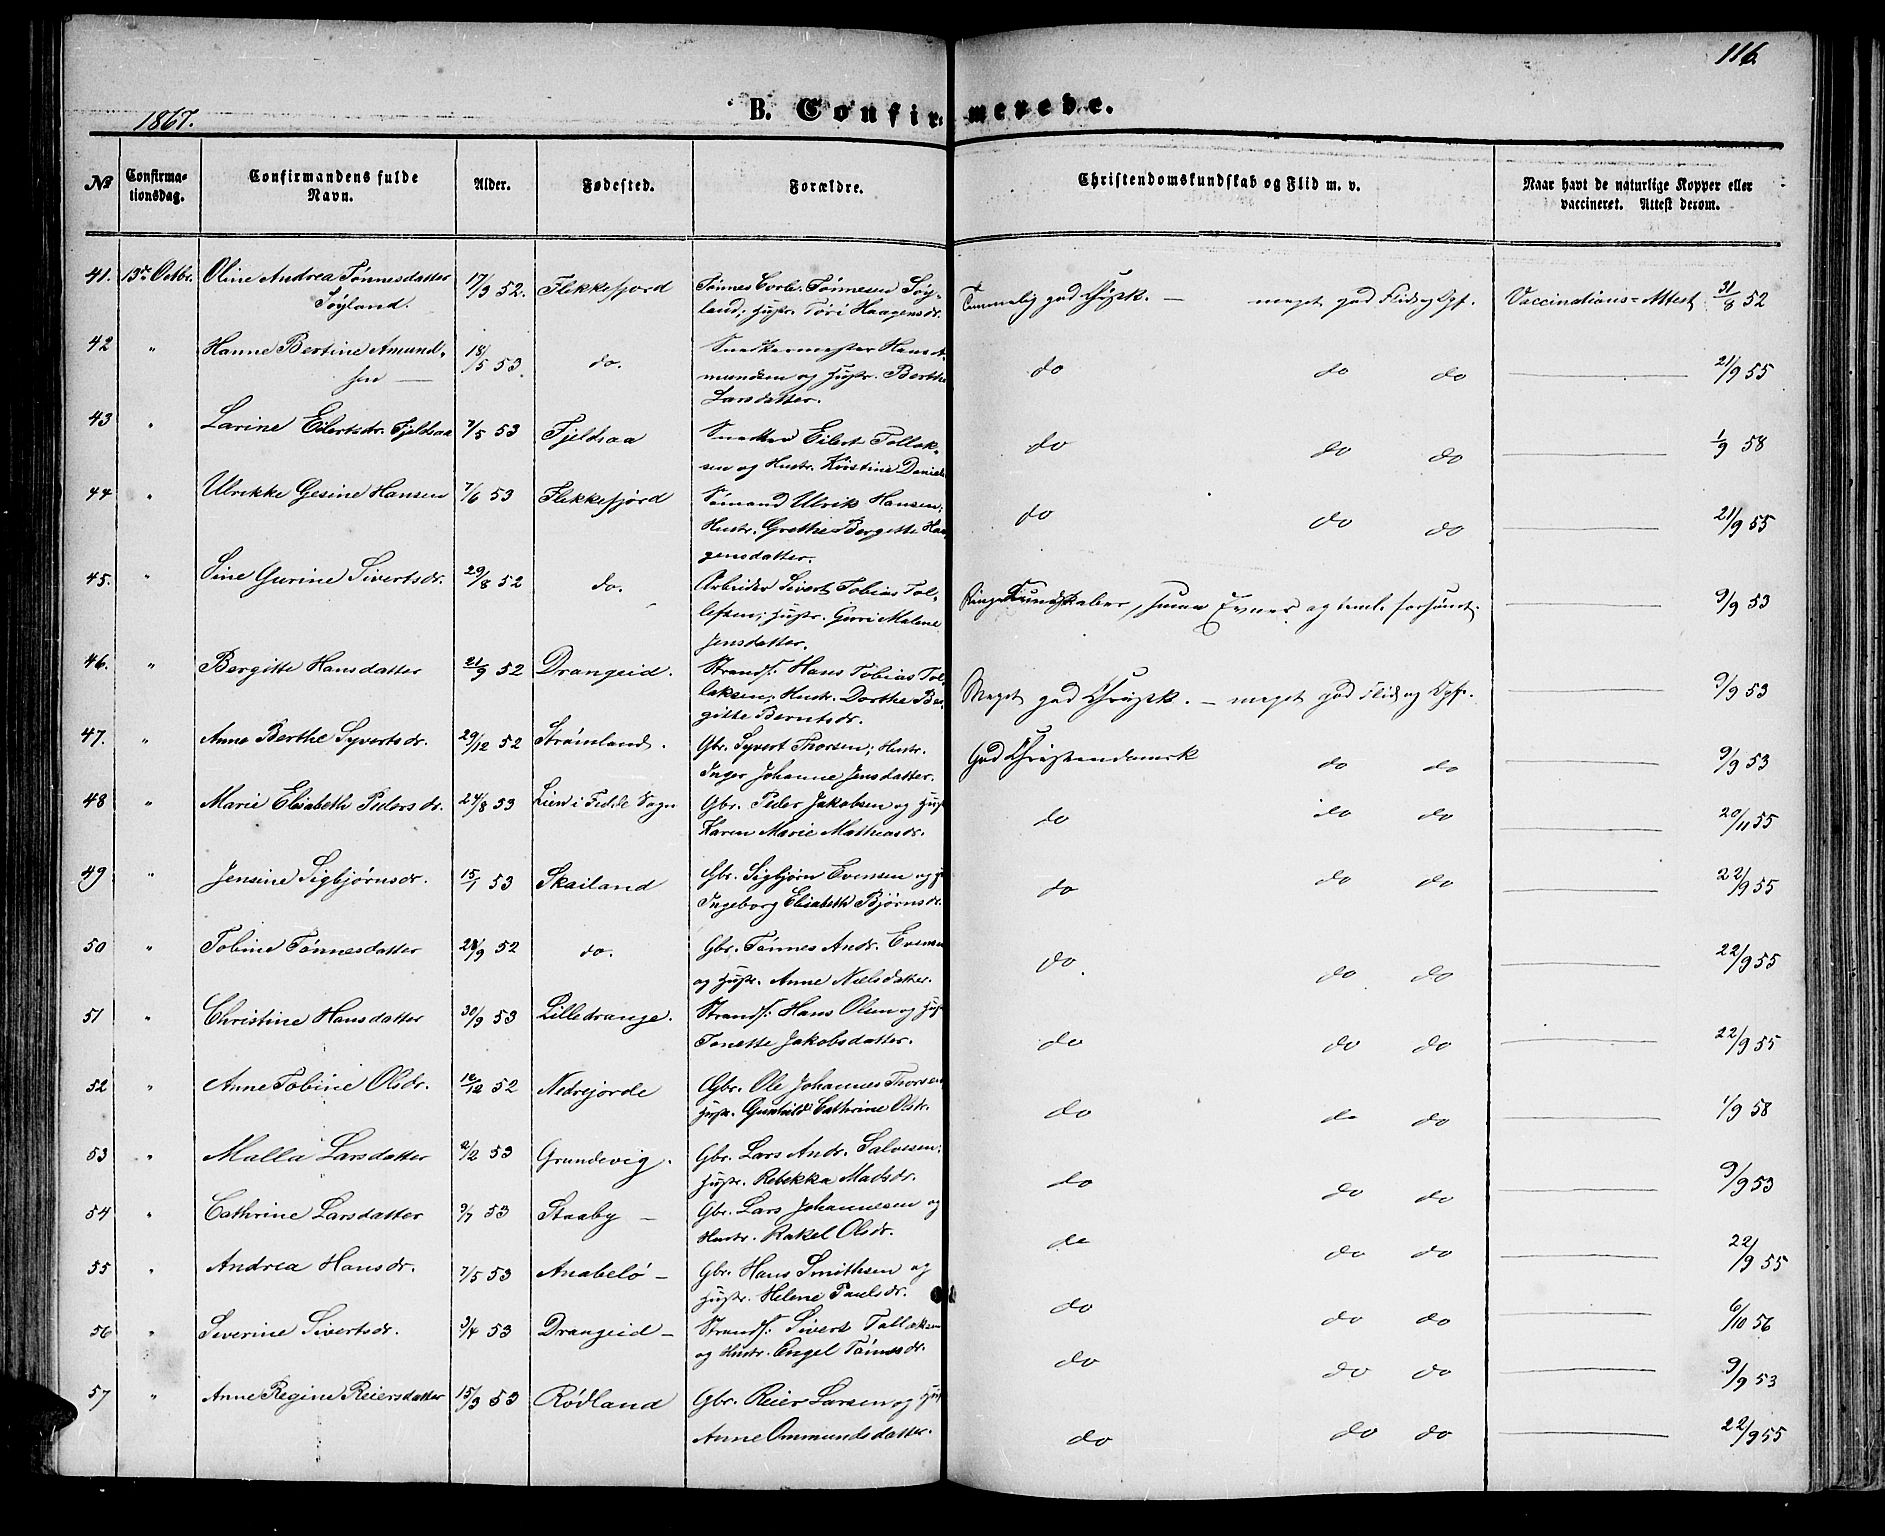 116
1867.
B. Confirmerede.
№ Confirmationsdag. Confirmandens fulde Navn. Alder. Fødested. Forældre. Christendomskundskab og Flid m. v. Naar havt de naturlige Kopper eller vaccineret. Attest derom.
41. 13de Octbr. Oline Andrea Tønnesdatter 17/9 52. Flekkefjord Tønnes Tønnesen Søy- Temmelig god Chrk. — meget god Flid og Opf. Vaccinations=Attest 31/8 52
Søyland. land, Hustr. Töri Haagensdr.
42 " Hanne Bertine Amund- 18/5 53. do. Snedkermester Hans A- do do do 21/9 55
sen — mundsen og Hustr. Berthe
Larsdatter.
43 " Larine Eilertsdr. Fjeldsaa 7/5 53 Fjeldsaa Snedker Eilert Tollak- do do do 1/9 58
sen og Hustr. Kristine Daniels
44 " Ulrikke Gesine Hansen 7/6 53 Flekkefjord Sømand Ulrik Hansen, do do do 21/9 55
Hustr. Grethe Bergitte Haa-
gensdatter.
45. " Sine Gurine Sivertsdr. 29/8 52 do. Arbeider Sivert Tobias Tol- Ringe Kundskaber, smaa Evner og teml. forsömt. 9/9 53
lefsen, Hustr. Guri Malene
Jensdatter.
46. " Bergitte Hansdatter 21/9 52 Drangeid. Strands. Hans Tobias Tol- Meget god Chrk. — meget god Flid og Opf. 9/9 53
laksen, Hustr. Dorthe Ber-
gitte Berntsdr.
47. " Anne Berthe Syvertsdr. 29/12 52 Strømland. Gbr. Syvert Thorsen, Hustr. God Christendomsk do do 9/9 53
Inger Johanne Jensdatter.
48 " Marie Elisabeth Pedersdr. 24/8 53 Lien i Fedde Sogn Gbr. Peder Jakobsen og Hust do do do 20/11 55
Karen Marie Mathiasdr.
49 " Jensine Sigbjørnsdr. 15/1 53 Skailand Gbr. Sigbjørn Evensen og H do do do 22/9 55
Ingeborg Elisabeth Bjørnsdr.
50 " Tobine Tønnesdatter 28/9 52 do. Gbr. Tønnes Andr. Evensen do do do 22/9 55
og Hustr. Anne Nielsdatter.
51 " Christine Hansdatter 30/9 53 Lilledrange. Strands. Hans Olsen og Hus do do do 22/9 55
Tonette Jakobsdatter.
52 " Anne Tobine Olsdr. 12/12 52 Nedrejorde Gbr. Ole Johannes Thorsen do do do 1/9 58
Hustr. Gunhild Cathrine Olsdr.
53 " Malla Larsdatter 2/2 53 Grundevig. Gbr. Lars Andr. Salvesen, do do do 9/9 53
Hustr. Rebekka Madsdr.
54 " Cathrine Larsdatter 9/7 53 Staaby — Gbr. Lars Johannesen og do do do 22/9 55
Hustr. Rakel Olsdr.
55 " Andrea Hansdr. 7/5 53 Anabelö — Gbr. Hans Smithsen og do do do 6/10 56
Hustr. Helene Paulsdr.
56 " Severine Sivertsdr. 3/4 53 Drangeid — Strands. Sivert Tollaksen do do do 9/9 53
og Hustr. Engel Tönnesdr.
57 " Anne Regine Reiersdatter 15/3 53 Rødland Gbr. Reier Larsen og Hus do do do 22/9 55
Anne Ommundsdatter.